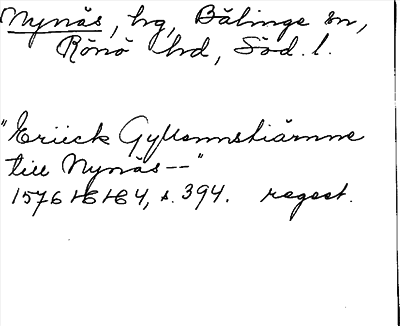 Nynäs, hg, Bälinge sn,
Rönö hd, Söd. l.
"Eriick Gyllennstiärnne
till Nynäs--"
1576 16/6 4, s. 394. regest.